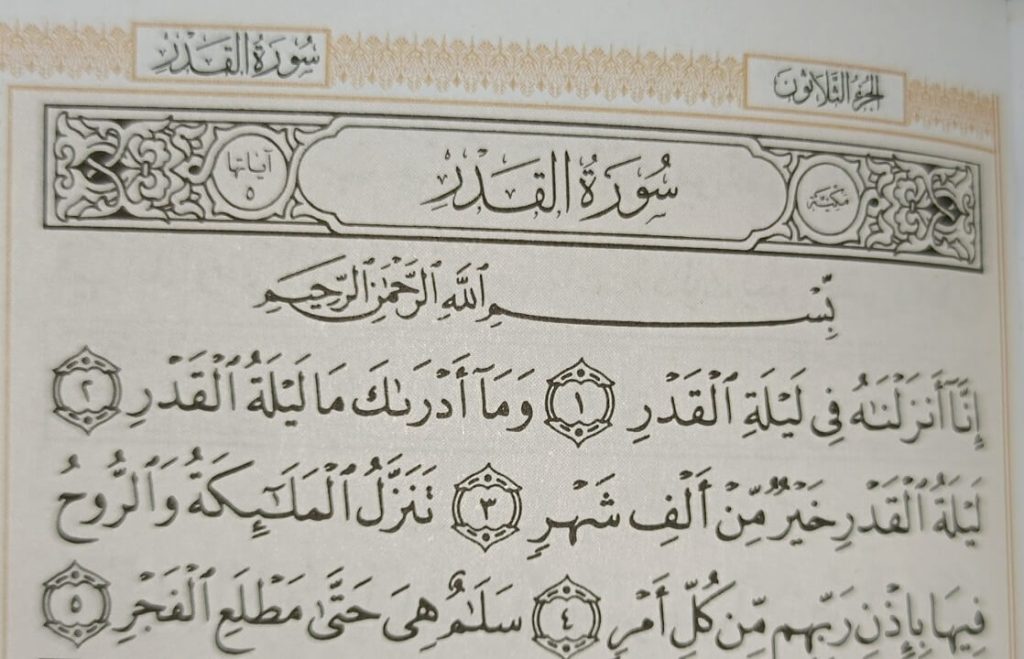 الجزء الثلاثون
سورة القدر
مكية
سُورَةُ القَدْرِ
آياتها ٥
بِّسْمِ ٱللَّهِ ٱلرَّحْمَٰنِ ٱلرَّحِيمِ
إِنَّآ أَنزَلْنَٰهُ فِى لَيْلَةِ ٱلْقَدْرِ ١ وَمَآ أَدْرَىٰكَ مَا لَيْلَةُ ٱلْقَدْرِ ٢
لَيْلَةُ ٱلْقَدْرِ خَيْرٌ مِّنْ أَلْفِ شَهْرٍ ٣ تَنَزَّلُ ٱلْمَلَٰٓئِكَةُ وَٱلرُّوحُ
فِيهَا بِإِذْنِ رَبِّهِم مِّن كُلِّ أَمْرٍ ٤ سَلَٰمٌ هِىَ حَتَّىٰ مَطْلَعِ ٱلْفَجْرِ ٥